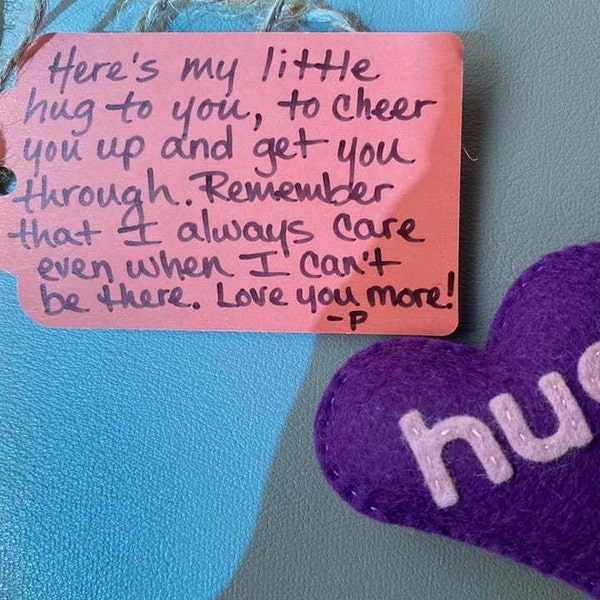 Here's my little
hug to you, to cheer
you up and get you
through. Remember
that I always care
even when I can't
be there. Love you more!
-P
hug